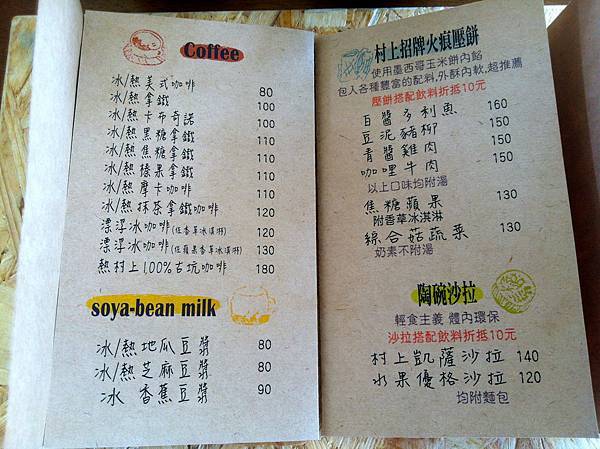 Coffee
冰/熱美式咖啡 80
冰/熱拿鐵 100
冰/熱卡布奇諾 100
冰/熱黑糖拿鐵 110
冰/熱焦糖拿鐵 110
冰/熱榛果拿鐵 110
冰/熱摩卡咖啡 110
冰/熱抹茶拿鐵咖啡 120
漂浮冰咖啡(佐香草冰淇淋) 120
漂浮冰咖啡(佐蘋果香草冰淇淋) 130
熱村上100%古坑咖啡 180
soya-bean milk
冰/熱地瓜豆漿 80
冰/熱芝麻豆漿 80
冰 香蕉豆漿 90
村上招牌火痕壓餅
使用墨西哥玉米餅內餡
包入各種豐富的配料,外酥內軟,超推薦
壓餅搭配飲料折抵10元
百醬多利魚 160
豆泥豬柳 150
青醬雞肉 150
咖哩牛肉 150
以上口味均附湯
焦糖蘋果 130
附香草冰淇淋
綜合菇蔬菜 130
奶素不附湯
陶碗沙拉
輕食主義 體內環保
沙拉搭配飲料折抵10元
村上凱薩沙拉 140
水果優格沙拉 120
均附麵包